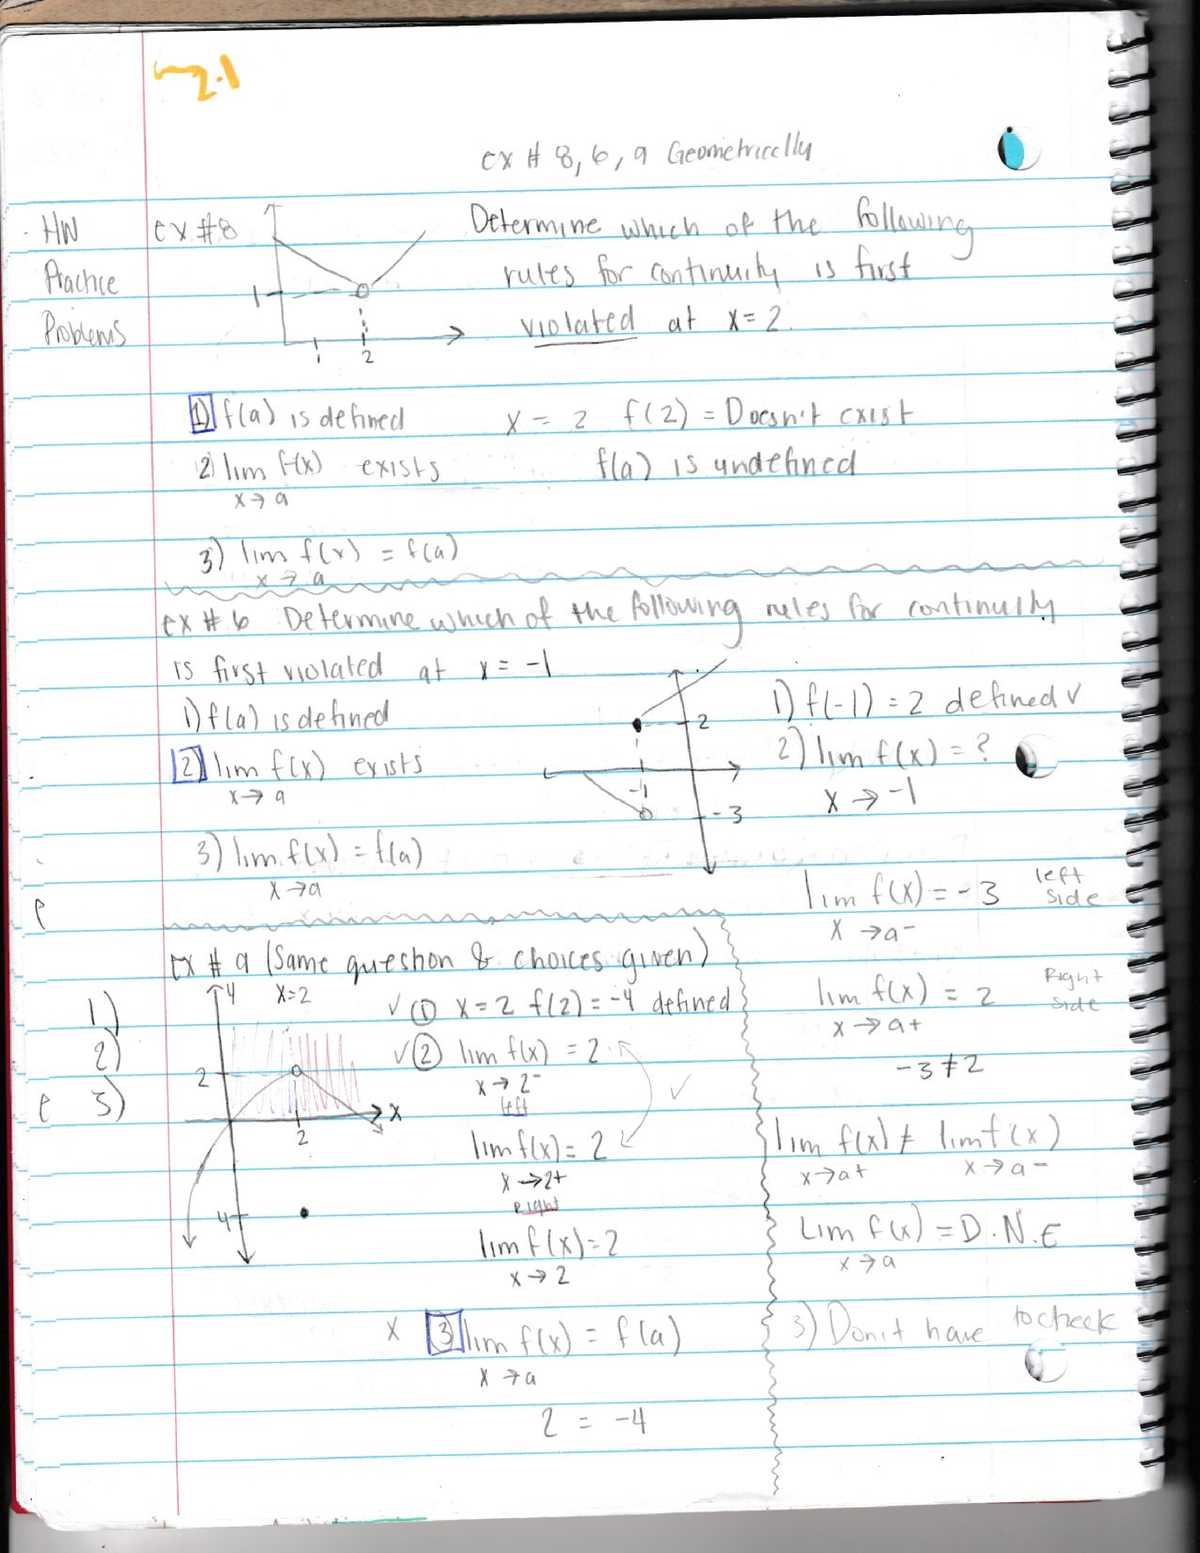 2.1
ex # 8, 6, 9 Geometrically
HW
Practice
Problems
ex #8
Determine which of the following
rules for continuity is first
violated at x = 2.
1
1
2
1) f(a) is defined
x = 2 f(2) = Doesn't exist
2) lim f(x) exists
x→a
f(a) is undefined
3) lim f(x) = f(a)
x→a
ex # 6 Determine which of the following rules for continuity
is first violated at x = -1
1) f(a) is defined
2) lim f(x) exists
x→a
3) lim f(x) = f(a)
x→a
2
-1
-3
1) f(-1) = 2 defined ✓
2) lim f(x) = ?
x→-1
lim f(x) = -3 left side
x→a-
lim f(x) = 2 Right side
x→a+
-3≠2
lim f(x) ≠ lim f(x)
x→a+ x→a-
Lim f(x) = D.N.E
x→a
3) Don't have to check
ex # 9 (Same question & choices given)
1)
2)
3)
4
x=2
2
x
2
4
✓ ① x=2 f(2) = -4 defined
✓ ② lim f(x) = 2
x→2-
left
✓
lim f(x) = 2
x→2+
Right
lim f(x) = 2
x→2
x 3 lim f(x) = f(a)
x→a
2 = -4